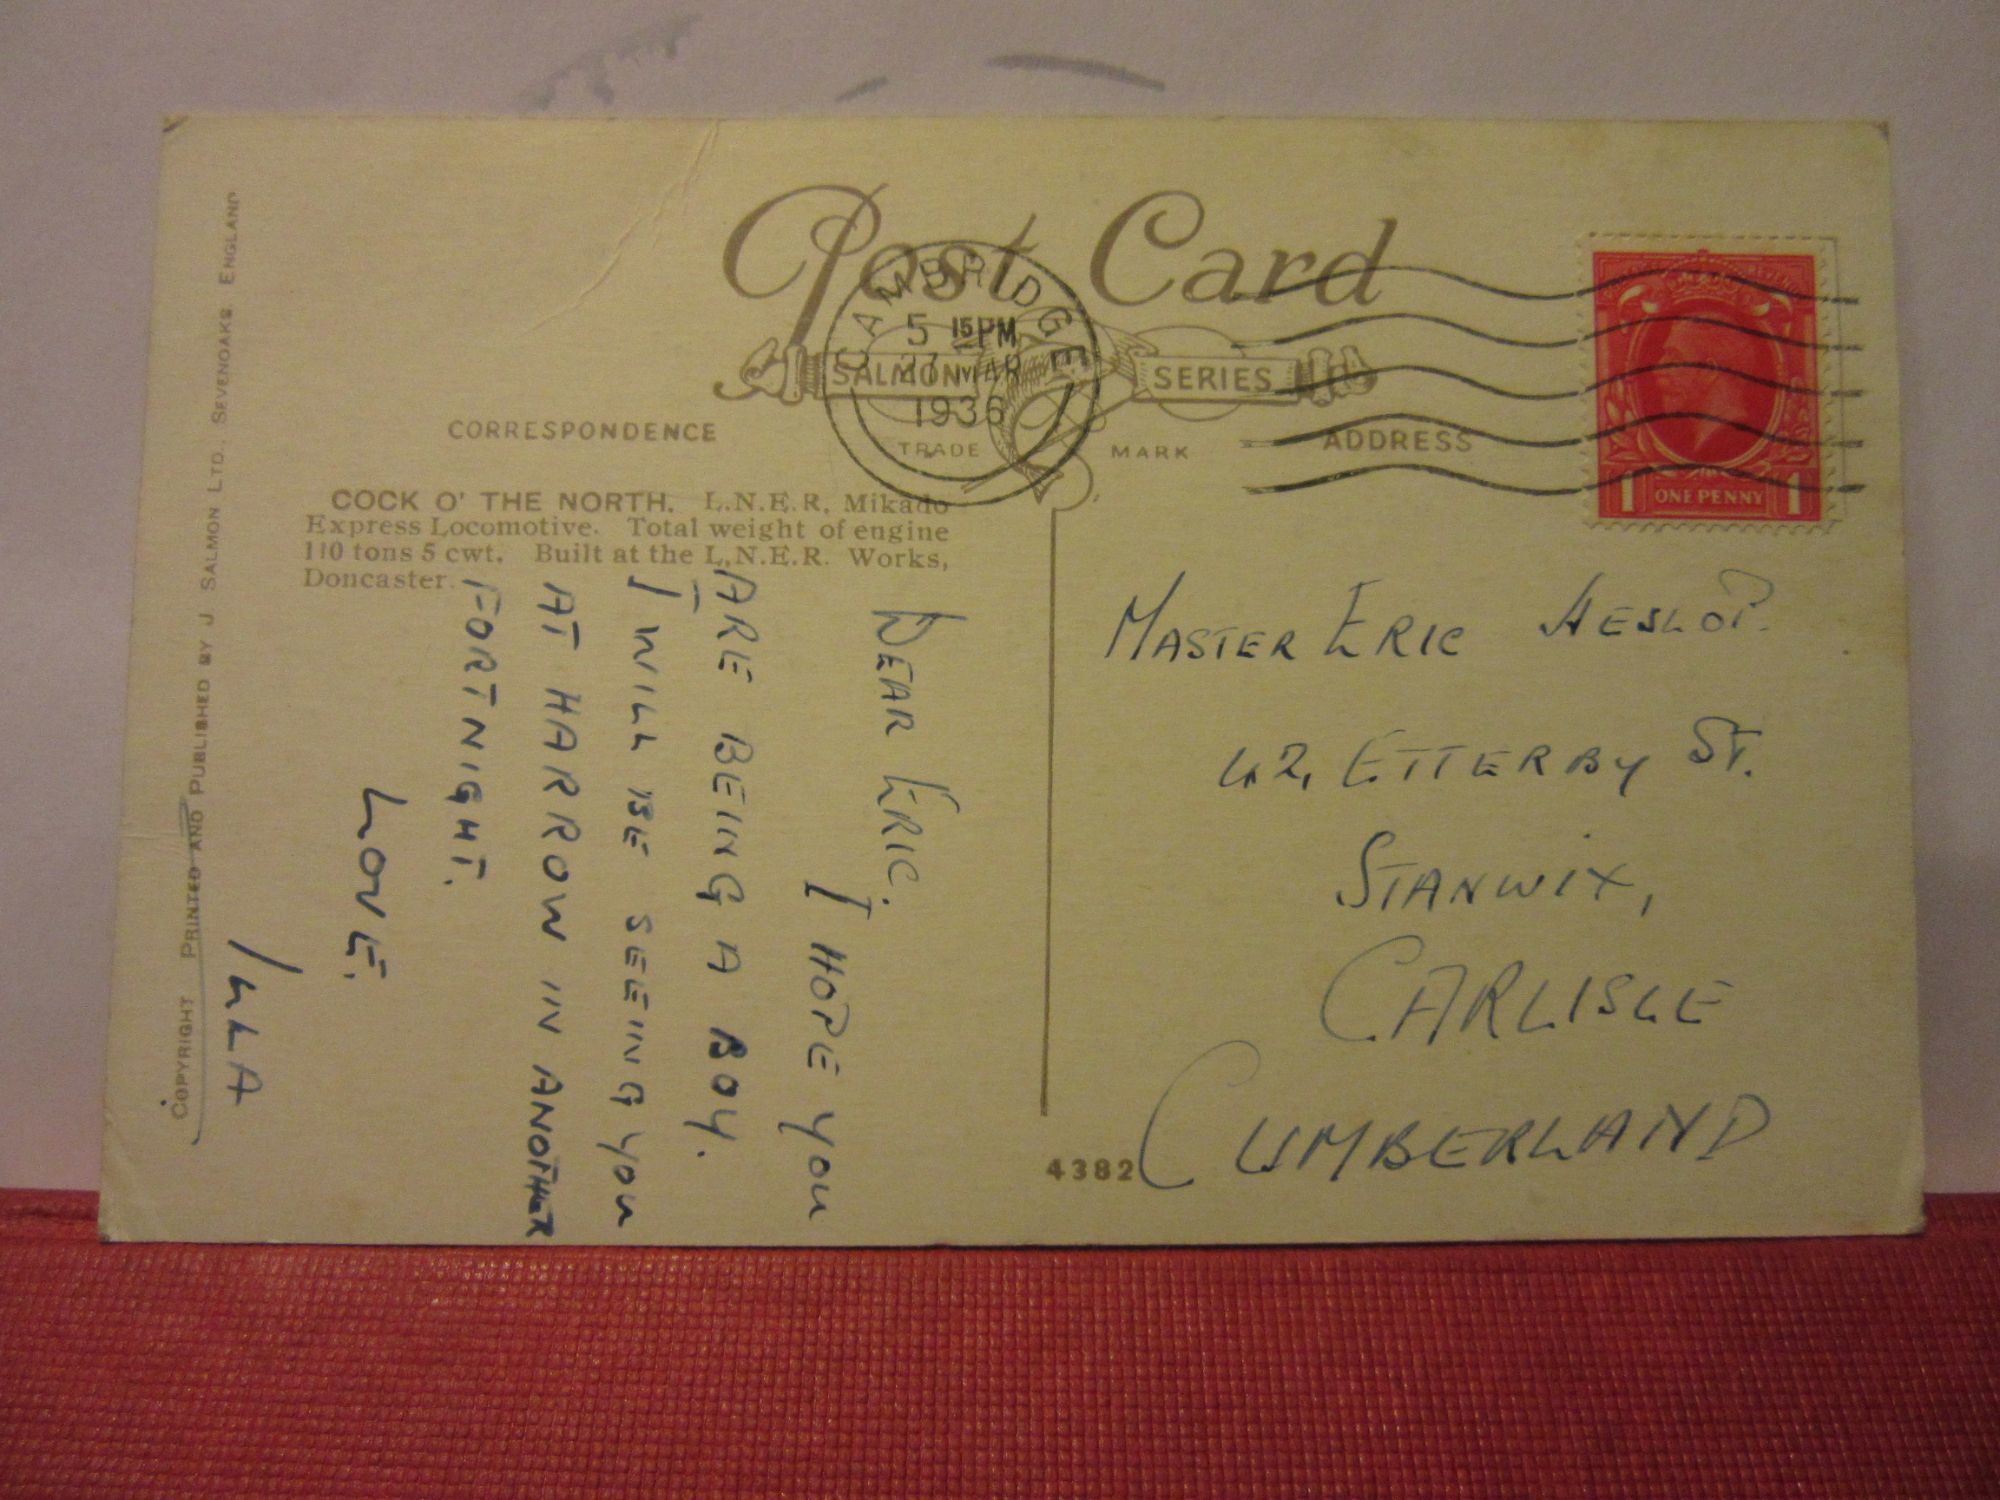 Post Card
CAMBRIDGE
5 15 PM
27 MAR
1936
SALMON SERIES
TRADE MARK
CORRESPONDENCE
ADDRESS
1 ONE PENNY 1
COCK O' THE NORTH. L.N.E.R, Mikado
Express Locomotive. Total weight of engine
110 tons 5 cwt. Built at the L.N.E.R. Works,
Doncaster.
DEAR ERIC.
I HOPE YOU
ARE BEING A BOY.
I WILL BE SEEING YOU
AT HARROW IN ANOTHER
FORTNIGHT.
LOVE.
MASTER ERIC HESLOP.
42, ETTERBY ST.
STANWIX,
CARLISLE
CUMBERLAND
4382
COPYRIGHT PRINTED AND PUBLISHED BY J SALMON LTD., SEVENOAKS, ENGLAND